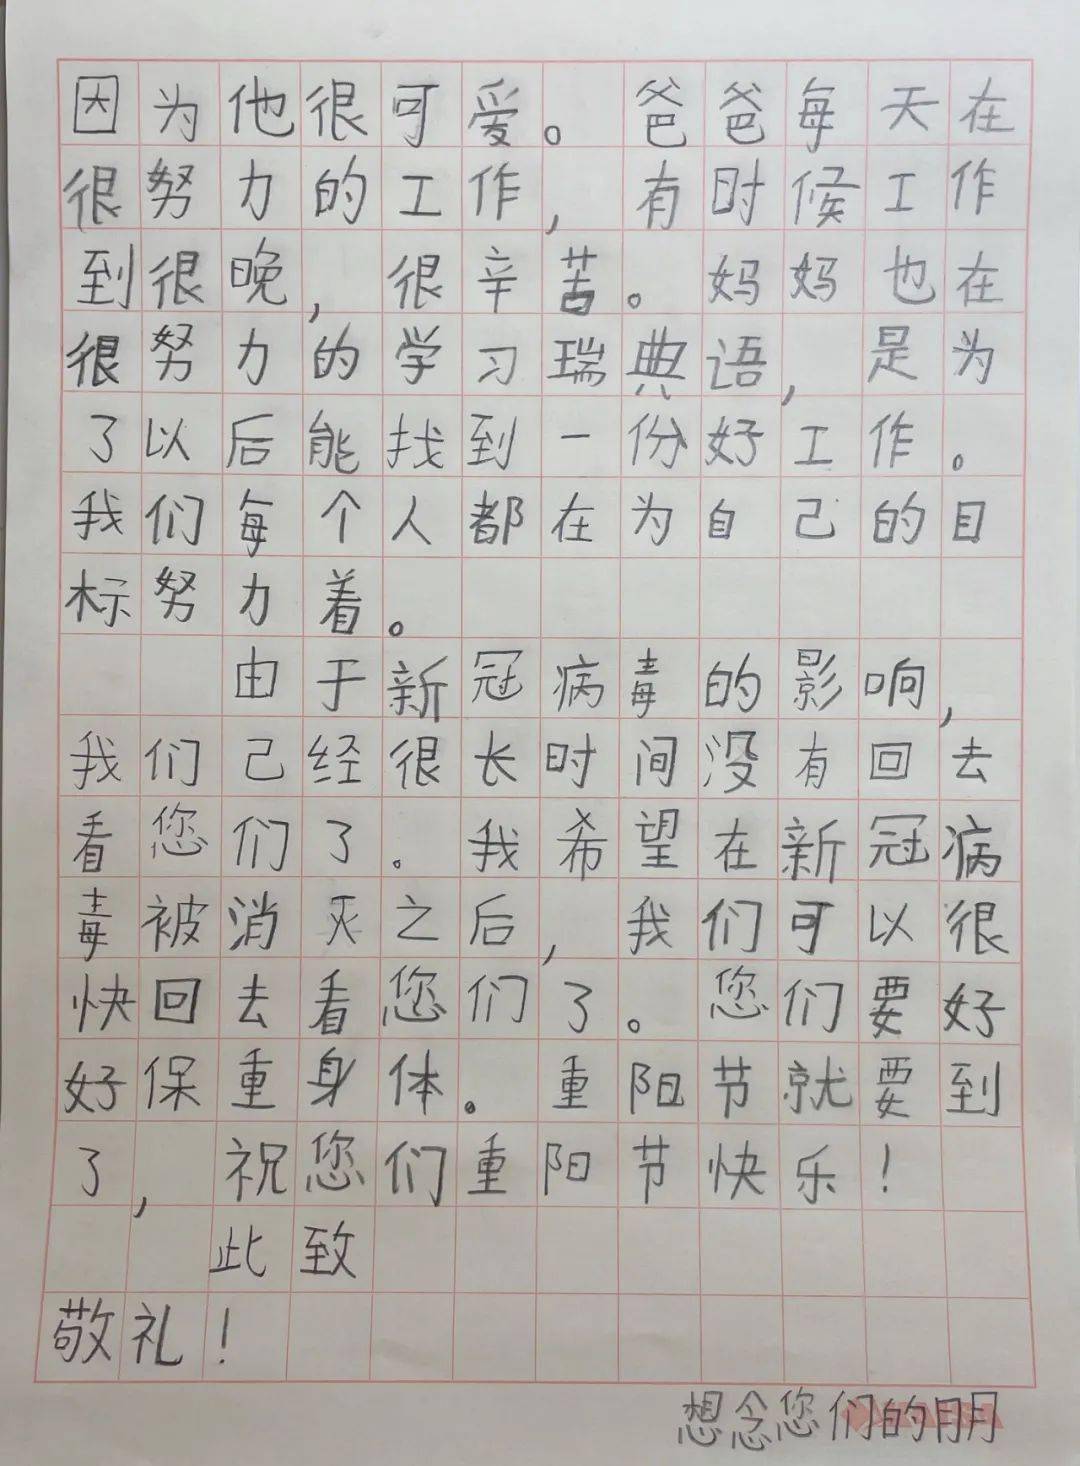 因为他很可爱。爸爸每天在
很努力的工作,有时候工作
到很晚,很辛苦。妈妈也在
很努力的学习瑞典语,是为
了以后能找到一份好工作。
我们每个人都在为自己的目
标努力着。
由于新冠病毒的影响,
我们己经很长时间没有回去
看您们了。我希望在新冠病
毒被消灭之后,我们可以很
快回去看您们了。您们要好
好保重身体。重阳节就要到
了,祝您们重阳节快乐!
此致
敬礼!
想念您们的